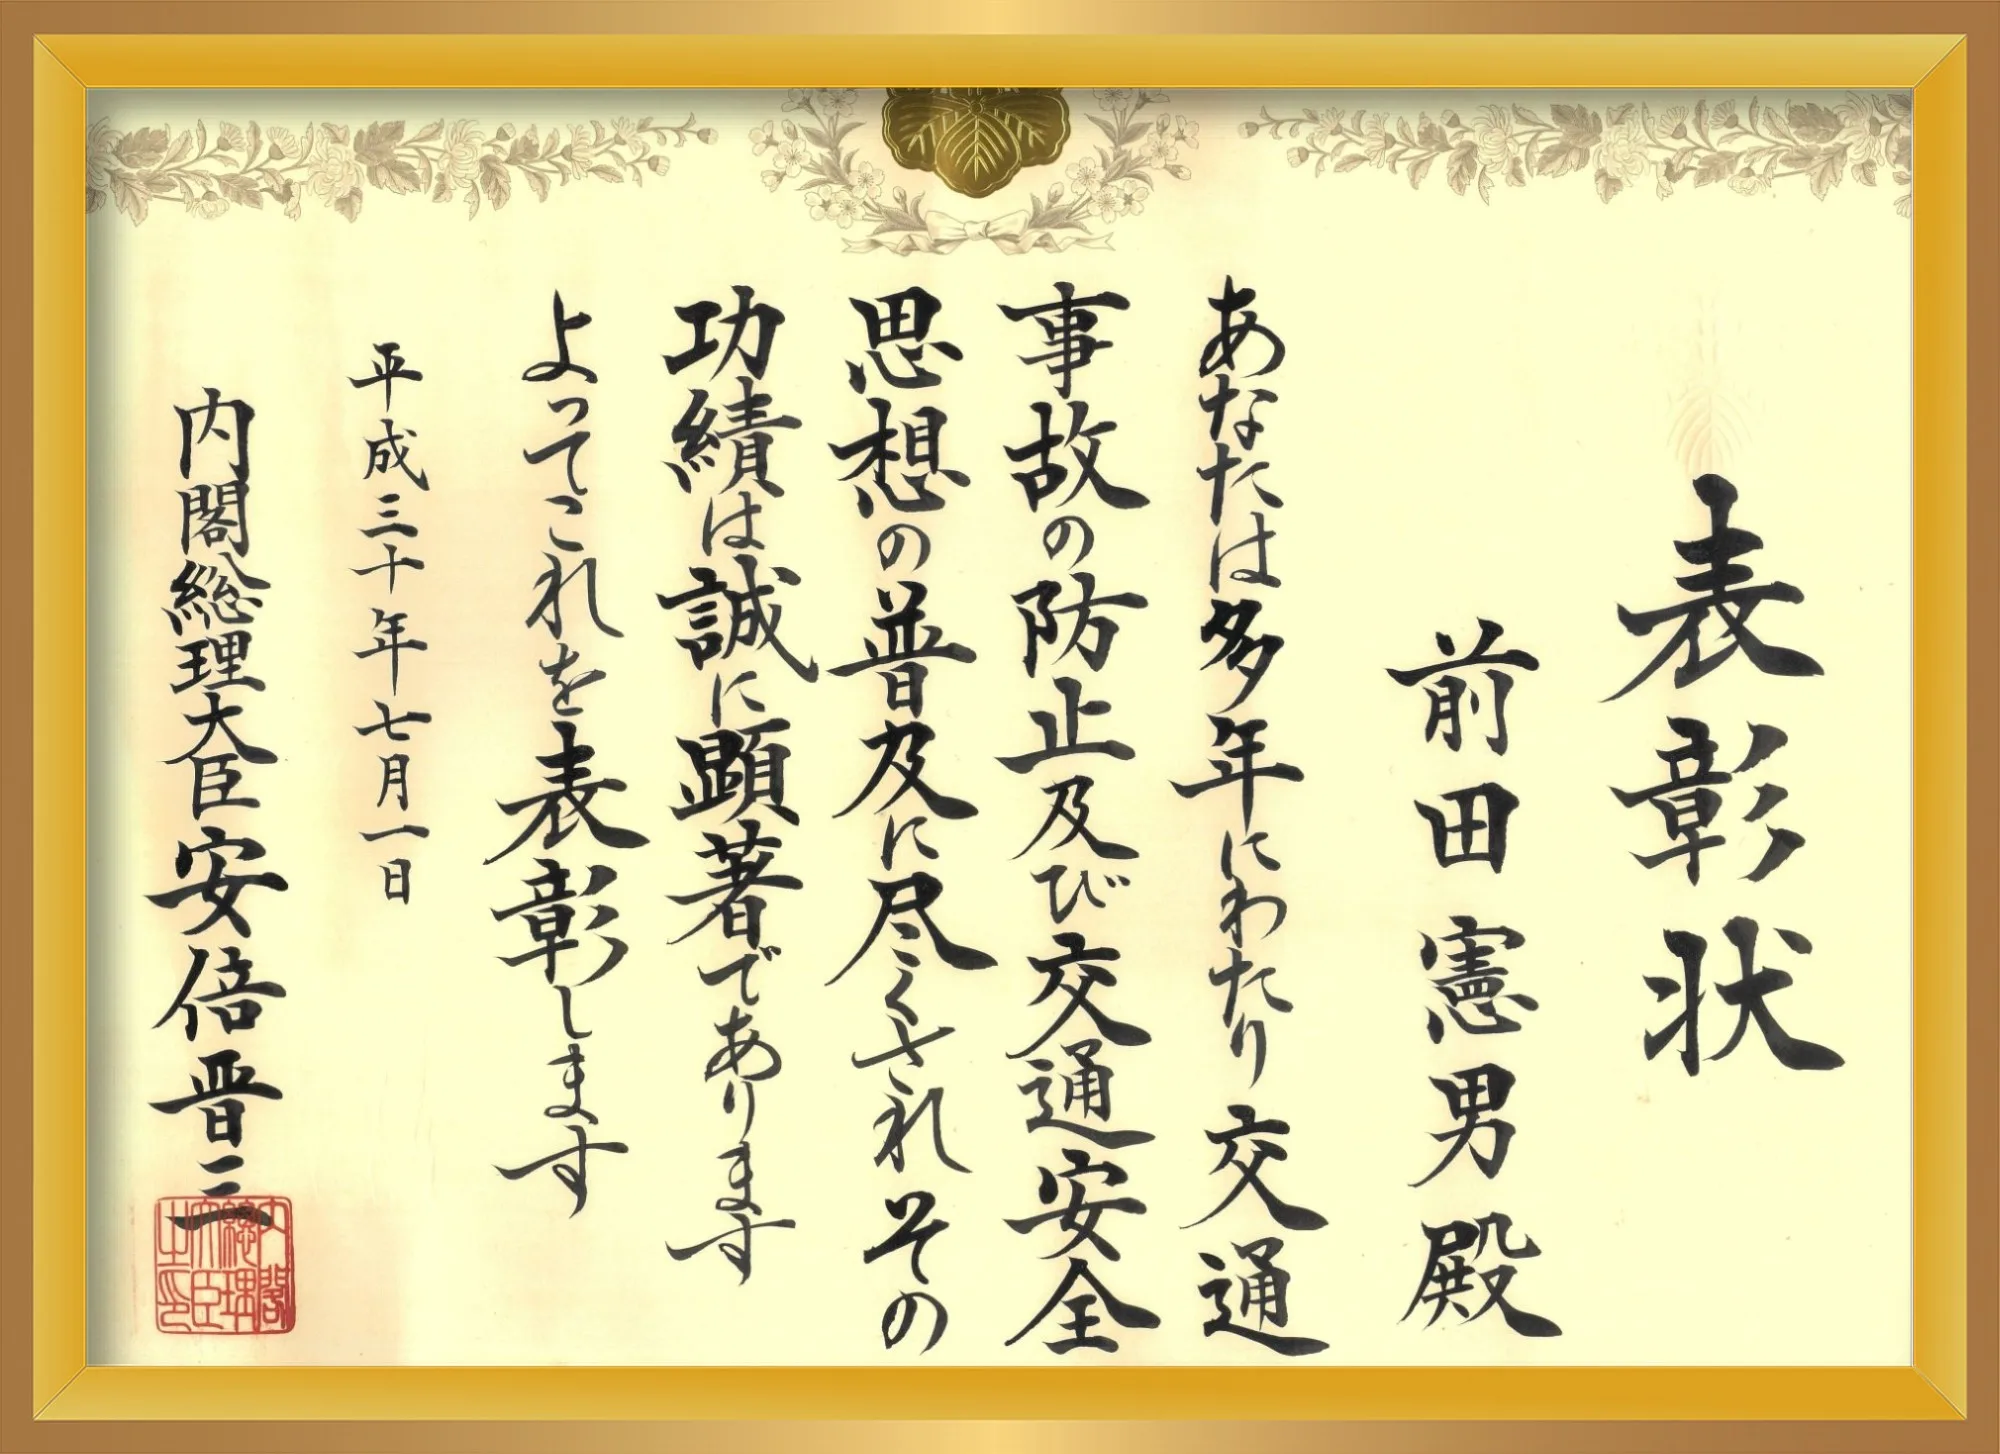 表彰状
前田憲男殿
あなたは多年にわたり交通
事故の防止及び交通安全
思想の普及に尽くされその
功績は誠に顕著であります
よってこれを表彰します
平成三十年七月一日
内閣総理大臣安倍晋三
内閣総理大臣之印